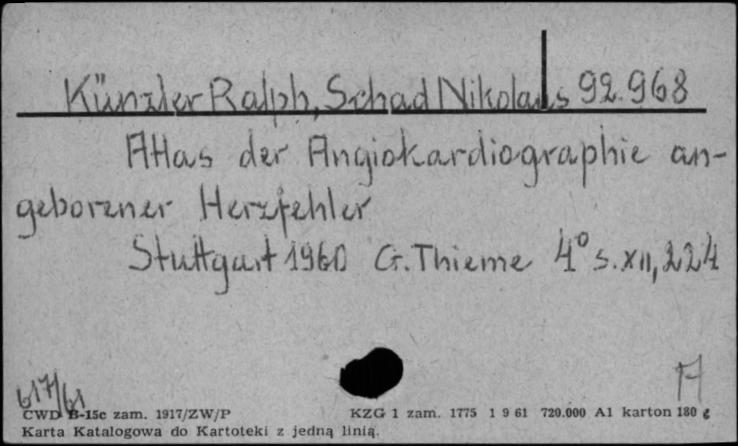 Künzler Ralph, Schad Nikolaus 92.968
Atlas der Angiokardiographie an-
geborener Herzfehler
Stuttgart 1960 G. Thieme 4° s. XII, 224
617/61
CWD B-15c zam. 1917/ZW/P KZG 1 zam. 1775 1 9 61 720.000 A1 karton 180 g
Karta Katalogowa do Kartoteki z jedną linią.